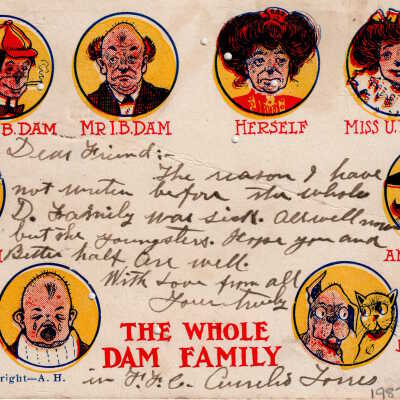 B. DAM MR I.B. DAM HERSELF MISS U.
Dear Friend:-
The reason I have
not writen before the whole
D. Family was sick. All well now
but the youngsters. Hope you and
Better half are well.
With Love from all
Your truly
THE WHOLE
DAM FAMILY
right—A. H.
in F. F. C.
198